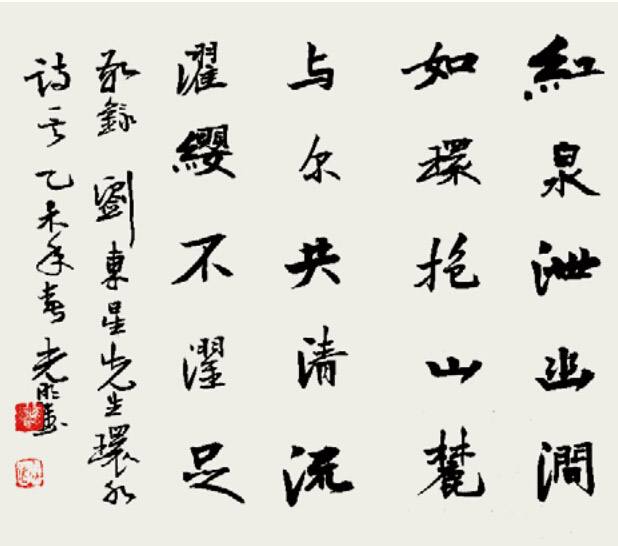 紅泉泄幽澗
如環抱山麓
与尔共清流
濯纓不濯足
敬錄劉東星先生環水
詩一首乙未年春光明書